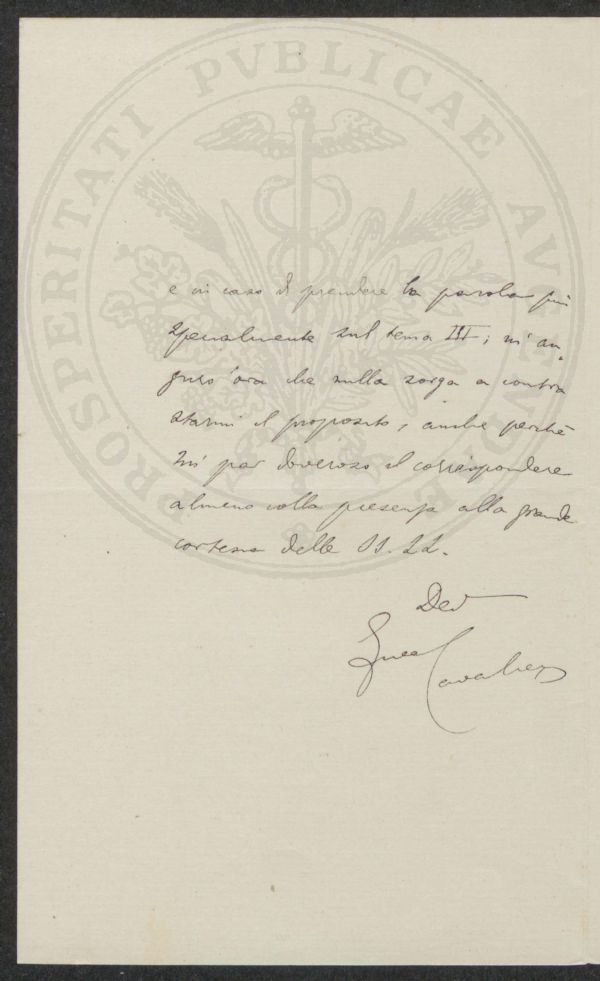 PROSPERITATI PVBLICAE AVGENDAE
e in caso di prendere la parola più
specialmente sul tema III; m'au-
guro ora che nulla sorga a contra
starmi il proposito, anche perchè
mi par doveroso il corrispondere
almeno colla presenza alla grande
cortesia delle SS. LL.
Dev
Cavalieri